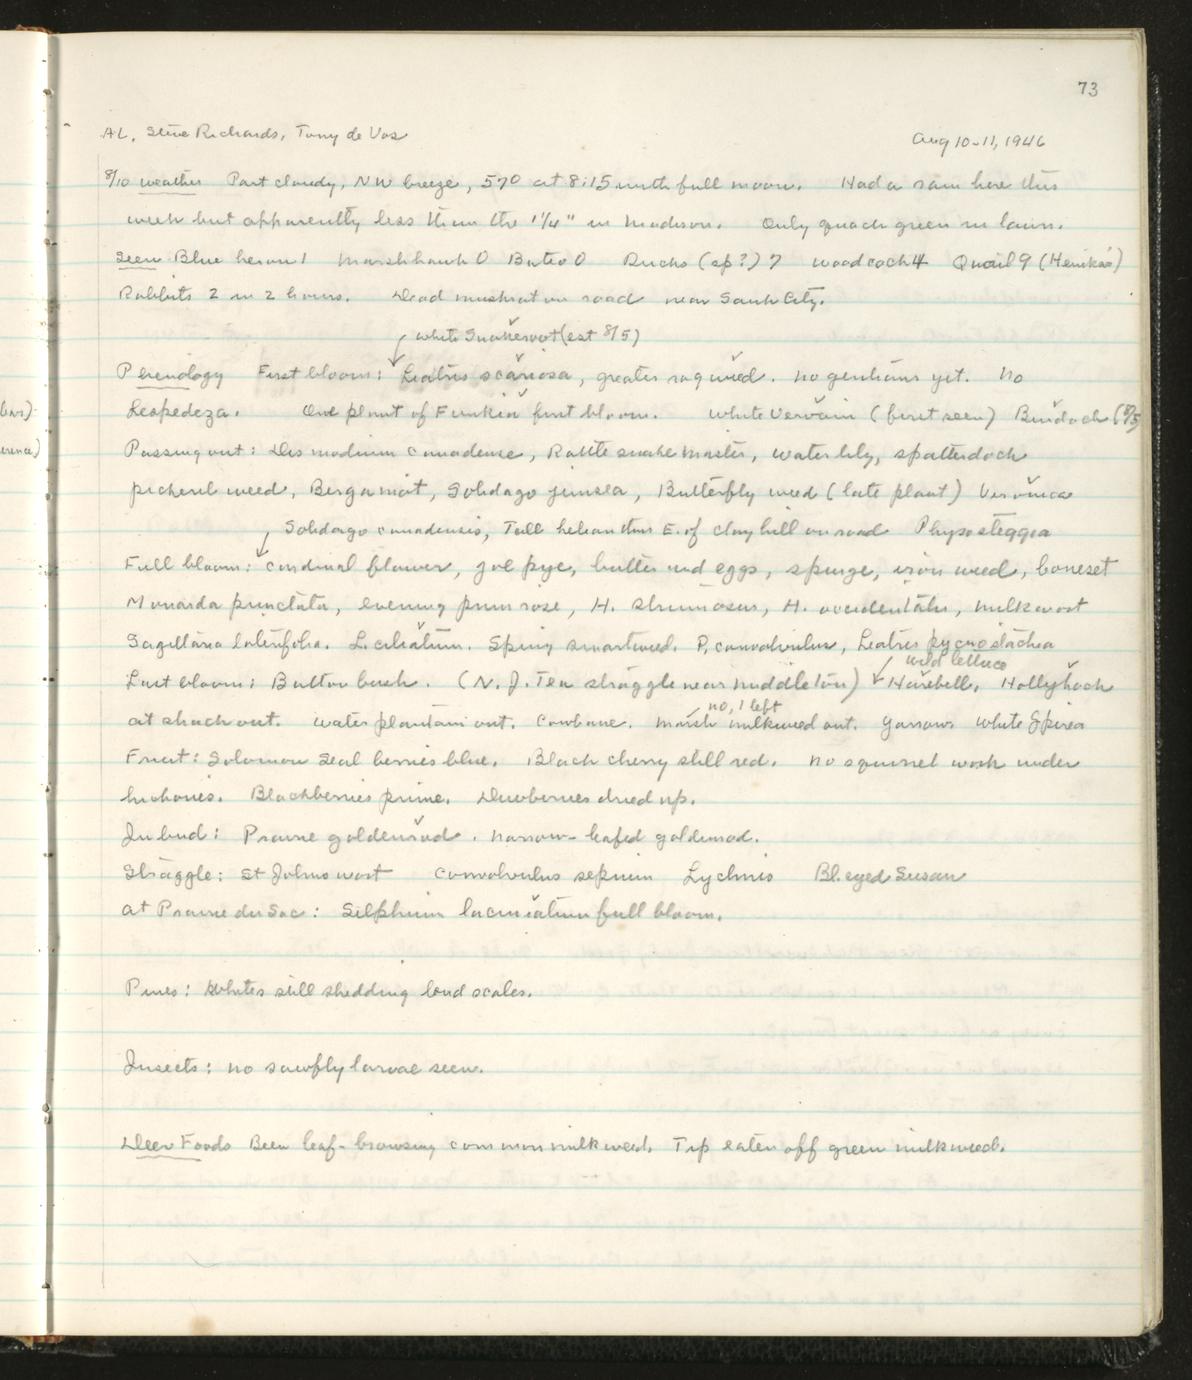 73
AL, Steve Richards, Tony de Vos
Aug 10-11, 1946
8/10 weather Part cloudy, NW breeze, 57° at 8:15 with full moon. Had a rain here this
week but apparently less than the 1¼" in Madison. Only quack green in lawn.
Seen Blue heron 1 Marsh hawk 0 Buteo 0 Ducks (sp?) 7 woodcock 4 Quail 9 (Henika's)
Rabbits 2 in 2 hours. Dead muskrat on road near Sauk City.
white Snakeroot (est 8/5)
Phenology First bloom: Liatris scariosa, greater ragweed. no gentians yet. No
Lespedeza. One plant of Funkia first bloom. White Vervain (first seen) Burdock (8/5)
Passing out: Desmodium canadense, Rattlesnake Master, water lily, spatterdock
pickerel weed, Bergamot, Solidago juncea, Butterfly weed (late plant) Veronica
Solidago canadensis, Tall helianthus E. of clay hill on road Physosteggia
Full bloom: cardinal flower, joe pye, butter and eggs, spurge, iron weed, boneset
Monarda punctata, evening primrose, H. strumosus, H. occidentalis, milkwort
Sagittaria latifolia. L. ciliatum. Spiny smartweed. P. convolvulus, Liatris pycnostachia
wild lettuce
Last bloom: Button bush. (N. J. Tea straggle near Middleton) Harebell, Hollyhock
no, 1 left
at shack out. water plantain out. Cowbane. Marsh milkweed out. Yarrow White Spirea
Fruit: Solomon Seal berries blue. Black cherry still red. No squirrel work under
hickories. Blackberries prime. Dewberries dried up.
In bud: Prairie goldenrod. Narrow-leafed goldenrod.
Straggle: St Johns wort Convolvulus sepium Lychnis Bl. eyed Susan
at Prairie du Sac: Silphium laciniatum full bloom.
Pines: Whites still shedding bud scales.
Insects: No sawfly larvae seen.
Deer Foods Been leaf-browsing common milkweed. Tip eaten off green milkweed.